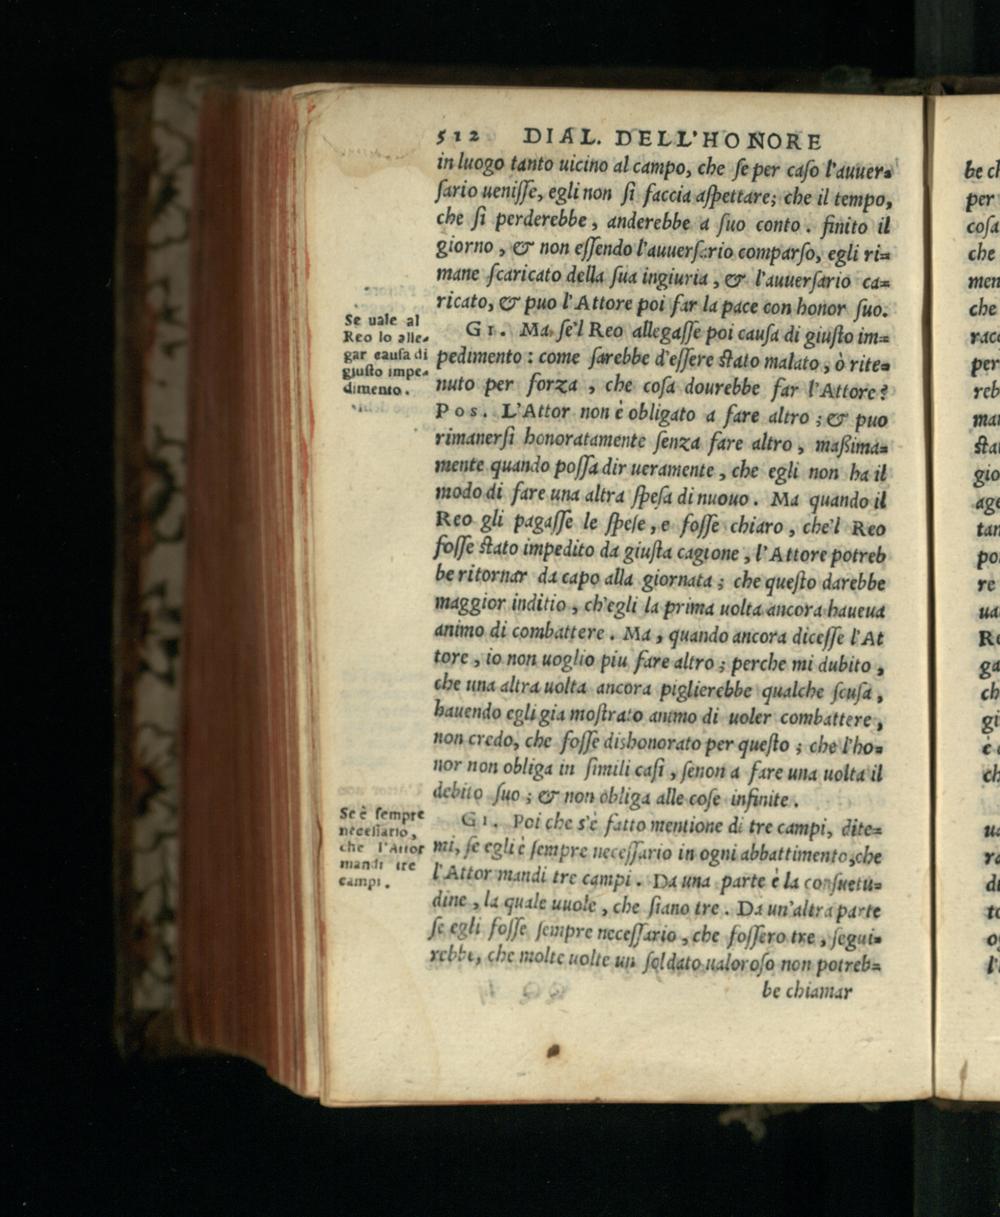 512 DIAL. DELL'HONORE
in luogo tanto uicino al campo, che ſe per caſo l'auuer=
ſario ueniſſe, egli non ſi faccia aſpettare; che il tempo,
che ſi perderebbe, anderebbe a ſuo conto. finito il
giorno, & non eſſendo l'auuerſario comparſo, egli ri=
mane ſcaricato della ſua ingiuria, & l'auuerſario ca=
ricato, & puo l'Attore poi far la pace con honor ſuo.
Se uale al
Reo lo alle=
gar cauſa di
giuſto impe=
dimento.
GI. Ma ſe'l Reo allegaſſe poi cauſa di giuſto im=
pedimento: come ſarebbe d'eſſere ſtato malato, ò rite=
nuto per forza, che coſa dourebbe far l'Attore?
Pos. L'Attor non è obligato a fare altro; & puo
rimanerſi honoratamente ſenza fare altro, maßima=
mente quando poſſa dir ueramente, che egli non ha il
modo di fare una altra ſpeſa di nuouo. Ma quando il
Reo gli pagaſſe le ſpeſe, e foſſe chiaro, che'l Reo
foſſe ſtato impedito da giuſta cagione, l'Attore potreb
be ritornar da capo alla giornata; che queſto darebbe
maggior inditio, ch'egli la prima uolta ancora haueua
animo di combattere. Ma, quando ancora diceſſe l'At
tore, io non uoglio piu fare altro; perche mi dubito,
che una altra uolta ancora piglierebbe qualche ſcuſa,
hauendo egli gia moſtrato animo di uoler combattere,
non credo, che foſſe dishonorato per queſto; che l'ho=
nor non obliga in ſimili caſi, ſenon a fare una uolta il
debito ſuo; & non obliga alle coſe infinite.
Se è ſempre
neceſſario,
che l'Attor
mandi tre
campi.
GI. Poi che s'è fatto mentione di tre campi, dite=
mi, ſe egli è ſempre neceſſario in ogni abbattimento, che
l'Attor mandi tre campi. Da una parte è la conſuetu=
dine, la quale uuole, che ſiano tre. Da un'altra parte
ſe egli foſſe ſempre neceſſario, che foſſero tre, ſegui=
rebbe, che molte uolte un ſoldato ualoroſo non potreb=
be chiamar